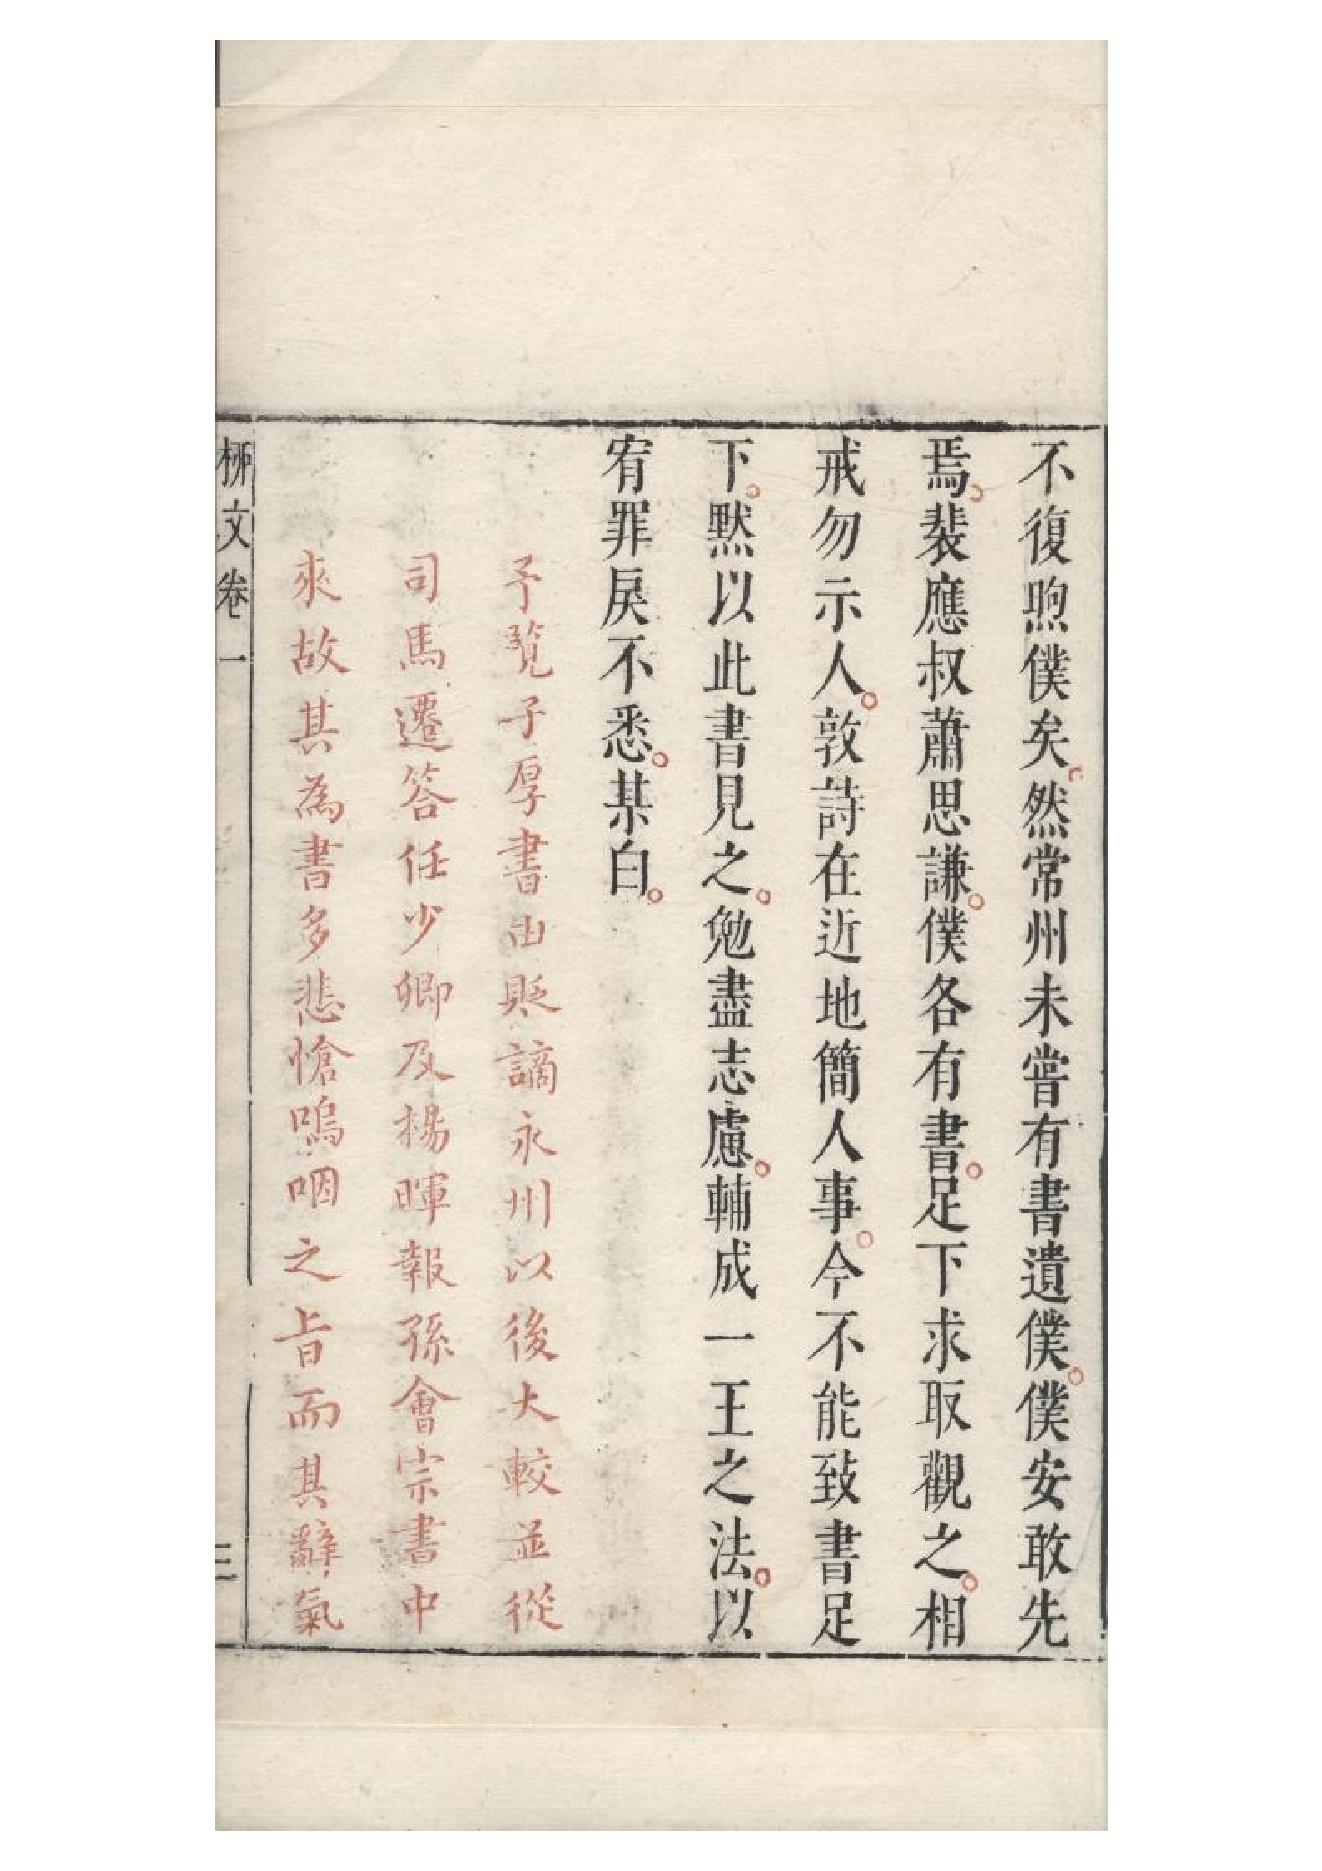 不復煦僕矣然常州未嘗有書遺僕僕安敢先
焉裴應叔蕭思謙僕各有書足下求取觀之相
戒勿示人敦詩在近地簡人事今不能致書足
下默以此書見之勉盡志慮輔成一王之法以
宥罪戾不悉某白
予覧子厚書由貶謫永州以後大較並從
司馬遷答任少卿及楊暉報孫會宗書中
來故其為書多悲愴嗚咽之旨而其辭氣
柳文卷一
三